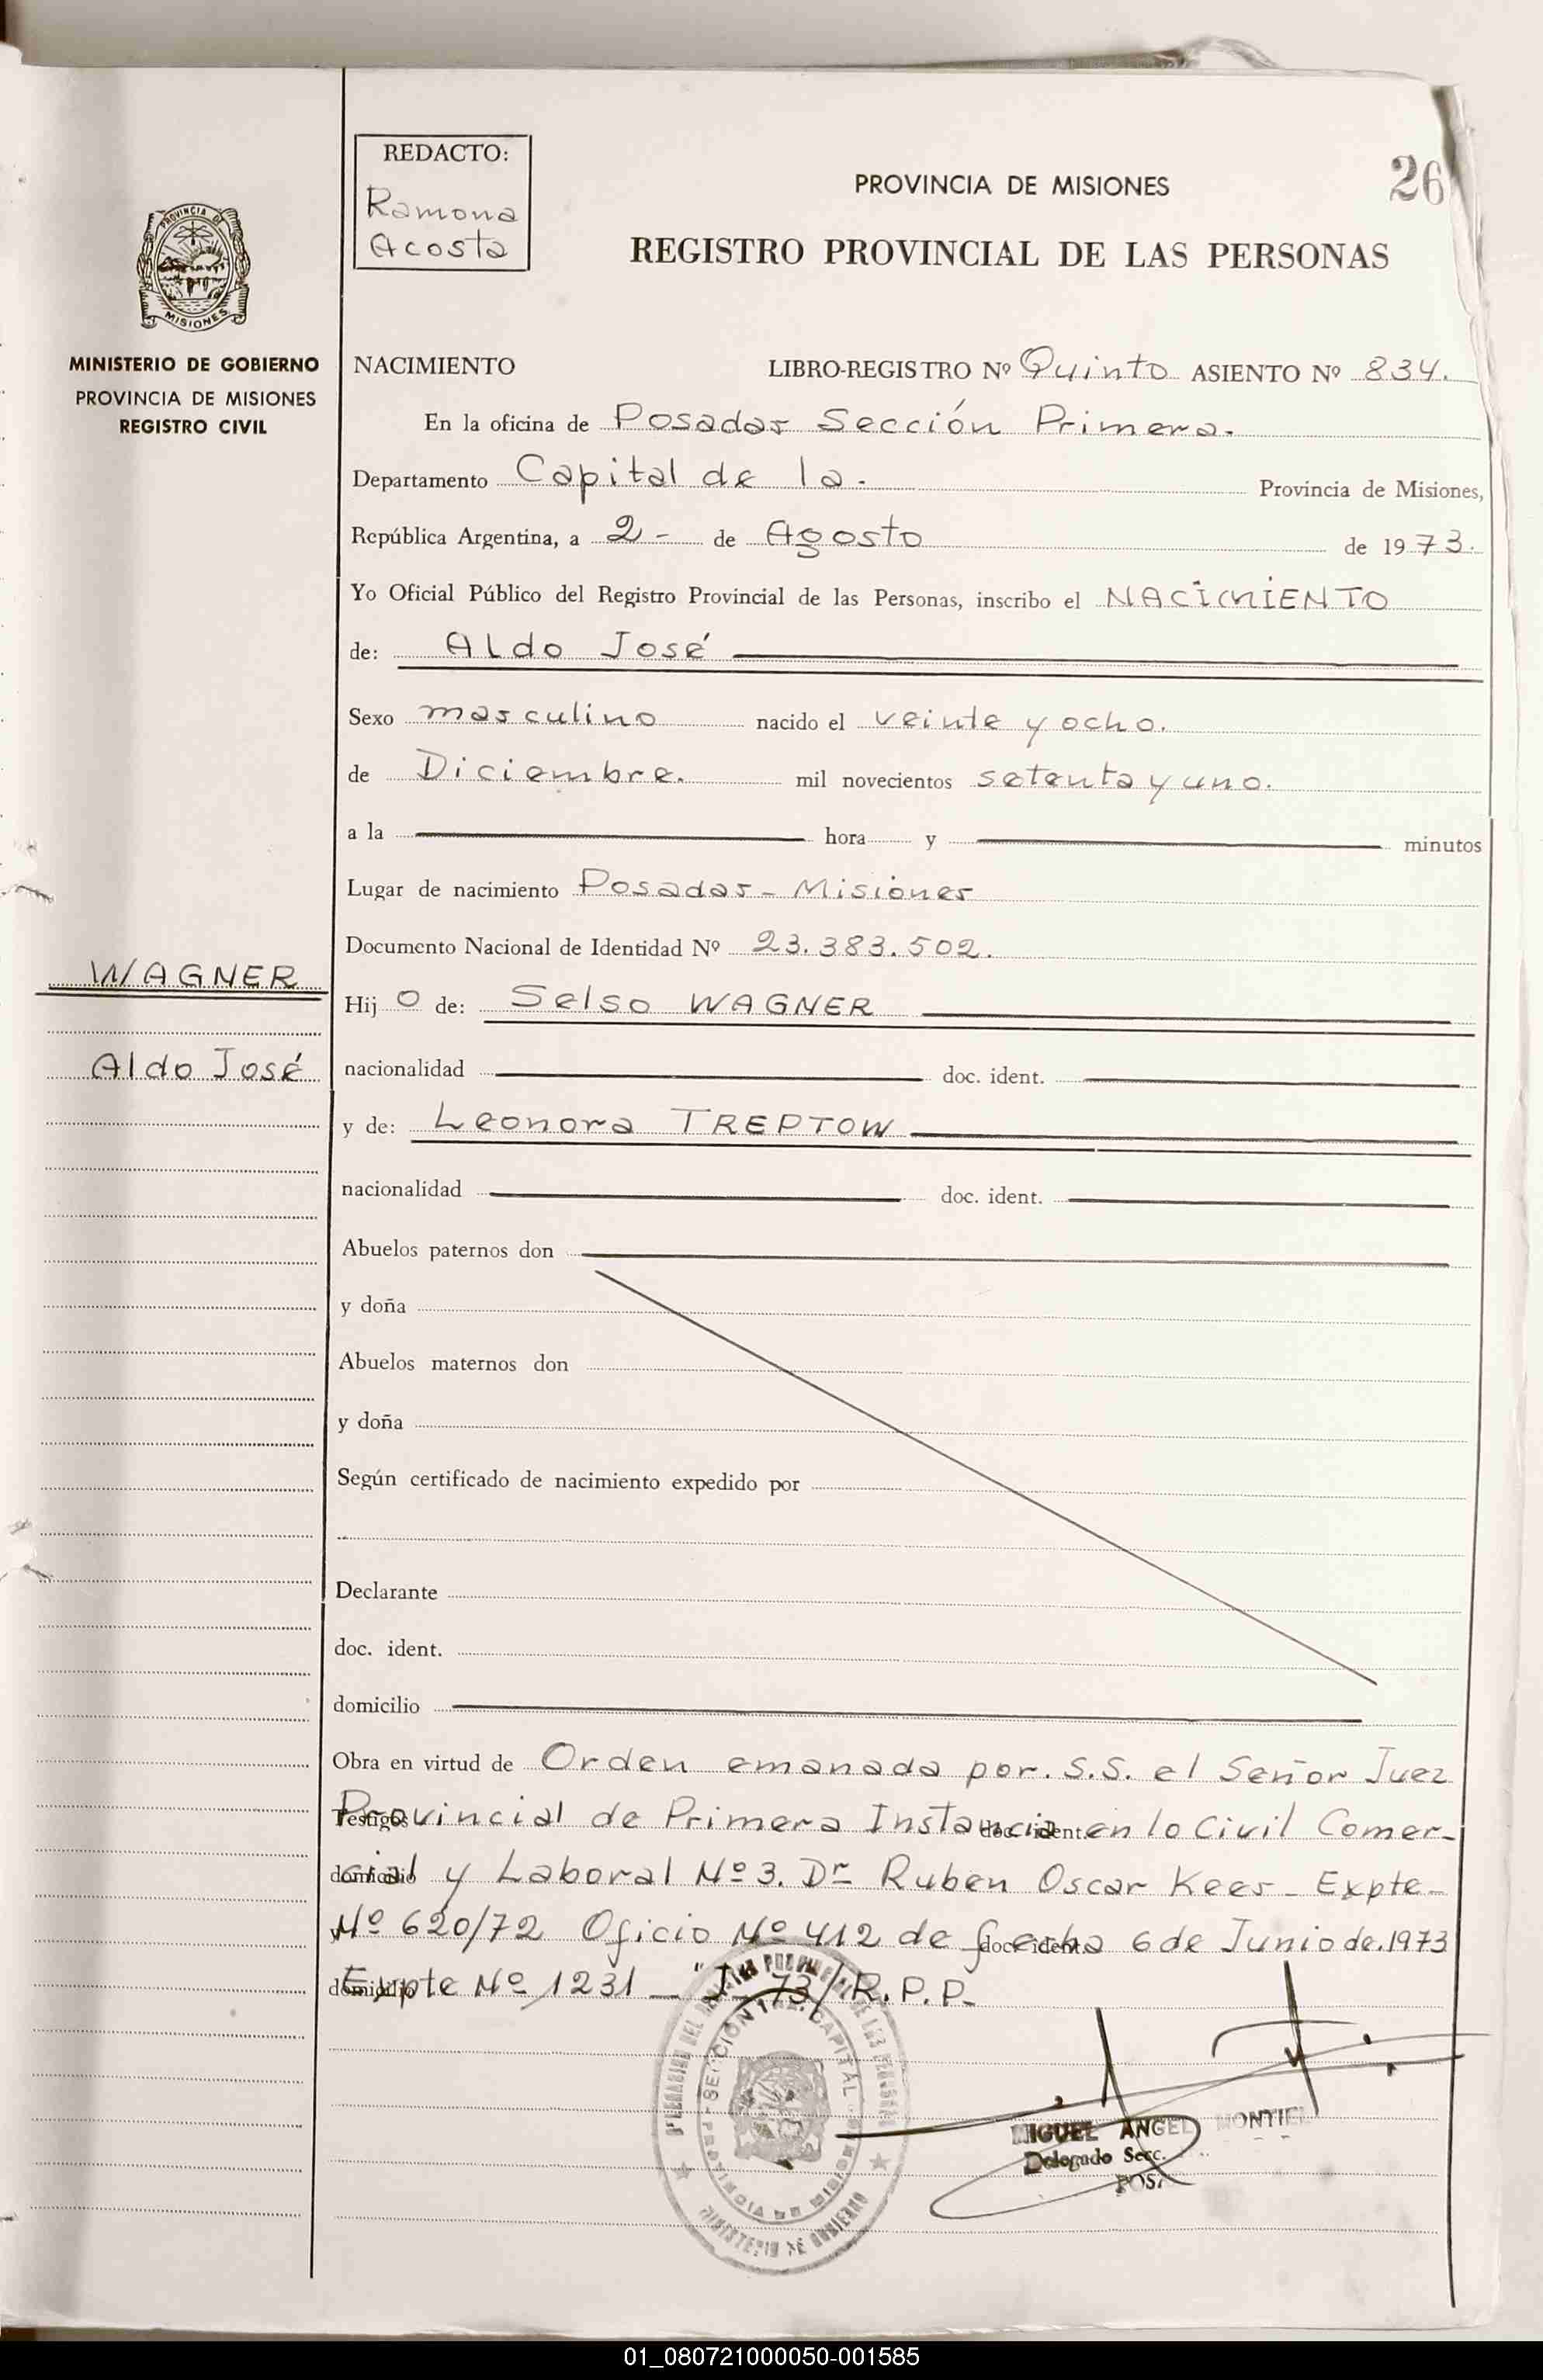 REDACTO:
Ramona
Acosta
PROVINCIA DE MISIONES
26
REGISTRO PROVINCIAL DE LAS PERSONAS
PROVINCIA DE
MISIONES
MINISTERIO DE GOBIERNO
PROVINCIA DE MISIONES
REGISTRO CIVIL
NACIMIENTO LIBRO-REGISTRO Nº Quinto ASIENTO Nº 834.
En la oficina de Posadas Sección Primera.
Departamento Capital de la. Provincia de Misiones,
República Argentina, a 2- de Agosto de 1973.
Yo Oficial Público del Registro Provincial de las Personas, inscribo el NACIMIENTO
de: Aldo José
Sexo masculino nacido el veinte y ocho.
de Diciembre. mil novecientos setenta y uno.
a la hora y minutos
Lugar de nacimiento Posadas - Misiones
Documento Nacional de Identidad Nº 23.383.502.
WAGNER
Hij o de: Selso WAGNER
Aldo José
nacionalidad doc. ident.
y de: Leonora TREPTOW
nacionalidad doc. ident.
Abuelos paternos don
y doña
Abuelos maternos don
y doña
Según certificado de nacimiento expedido por
Declarante
doc. ident.
domicilio
Obra en virtud de Orden emanada por. S.S. el Señor Juez
Testigos Provincial de Primera Instancia doc. ident. en lo Civil Comer-
domicilio cial y Laboral Nº 3. Dr Ruben Oscar Kees - Expte-
y Nº 620/72 Oficio Nº 412 de fecha doc. ident. 6 de Junio de 1973
domicilio Expte Nº 1231 - "J" 73/R.P.P.
SECCION 1ra. CAPITAL
PROVINCIA DE MISIONES
MINISTERIO DE GOBIERNO
MIGUEL ANGEL MONTIEL
Delegado Secc.
POSA
01_080721000050-001585